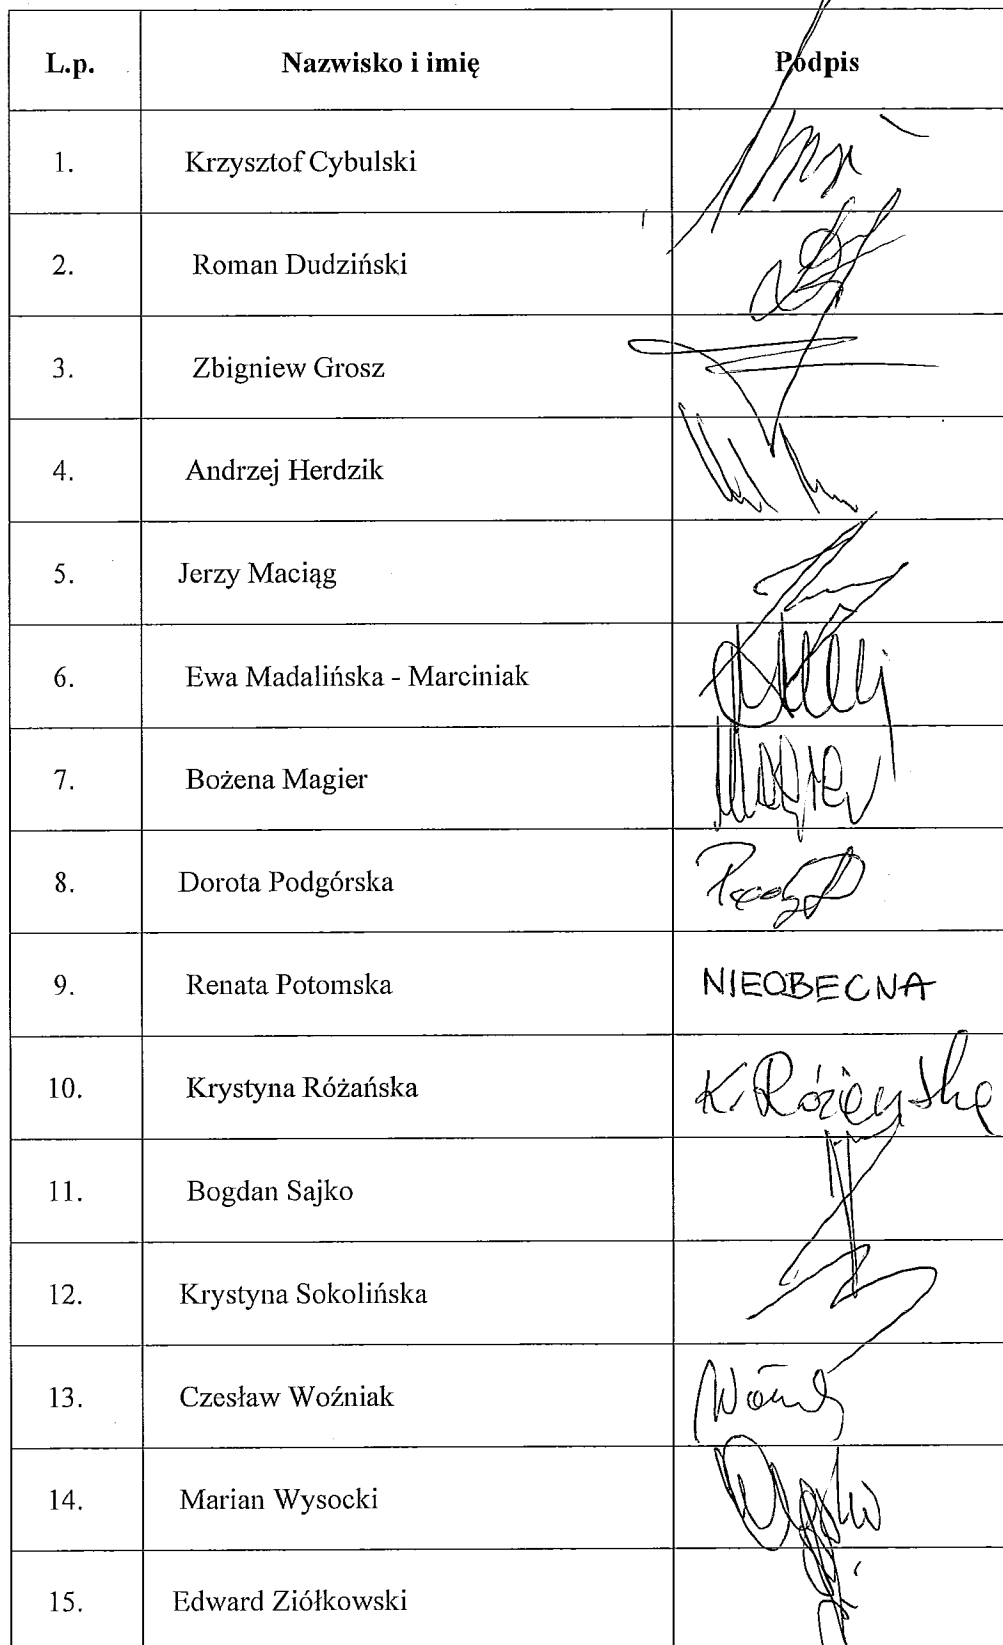 L.p. Nazwisko i imię Podpis
1. Krzysztof Cybulski
2. Roman Dudziński
3. Zbigniew Grosz
4. Andrzej Herdzik
5. Jerzy Maciąg
6. Ewa Madalińska - Marciniak
7. Bożena Magier Magier
8. Dorota Podgórska
9. Renata Potomska NIEOBECNA
10. Krystyna Różańska K. Różańska
11. Bogdan Sajko
12. Krystyna Sokolińska
13. Czesław Woźniak
14. Marian Wysocki
15. Edward Ziółkowski